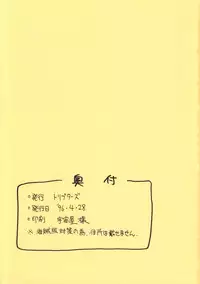 奥付
・発行 トリプターズ
・発行日 '96・4・28
・印刷 宇宙屋 様
※海賊版対策の為、住所は載せません。